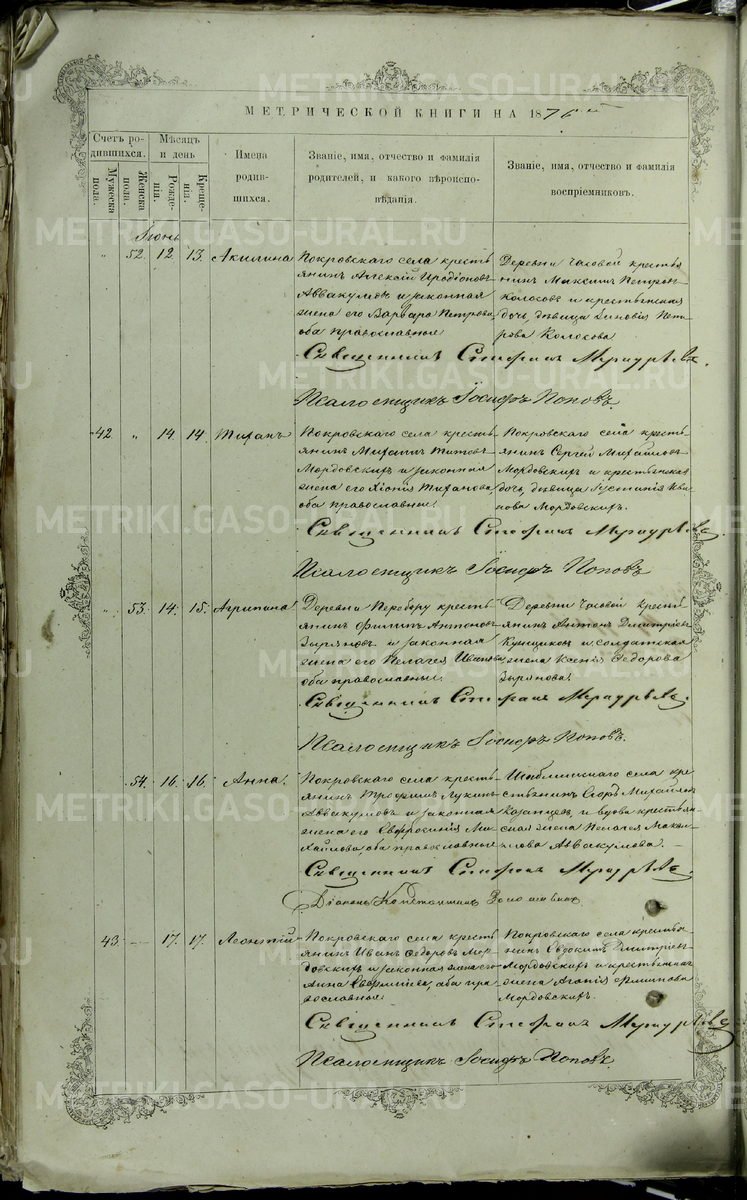 МЕТРИЧЕСКОЙ КНИГИ НА 1876й
Счетъ родившихся.
Мѣсяцъ и день
Имена родившихся.
Званіе, имя, отчество и фамилія родителей, и какого вѣроисповѣданія.
Званіе, имя, отчество и фамилія воспріемниковъ.
Мужеска пола.
Женска пола.
Рожденія.
Крещенія.
Іюнь
" 52. 12 13. Акилина
Покровскаго села кресть-
янинъ Алексѣй Иродіоновъ
Аввакумовъ и законная
жена его Варвара Петрова
оба православные
Деревни Часовой крестья-
нинъ Максимъ Петровъ
Колосовъ и крестьянская
дочь, дѣвица Зиновія Пет-
рова Колосова
Священникъ Стефанъ Меркурьевъ.
Псаломщикъ Іосифъ Поповъ.
42. " 14. 14. Тихонъ
Покровскаго села кресть-
янинъ Михаилъ Титовъ
Мордовскихъ и законная
жена его Хіонія
оба православные.
Покровскаго села кресть-
янинъ Сергей Михайловъ
Мордовскихъ и крестьянская
дочь, дѣвица Іустинія Ива-
нова Мордовскихъ.
Священникъ Стефанъ Меркурьевъ
Псаломщикъ Іосифъ Поповъ
" 53. 14. 15. Агрипина
Деревни Перебору кресть-
янинъ Филипъ Антоновъ
Зыряновъ и законная
жена его Пелагея Иванова
оба православные.
Деревни Часовой кресть-
янинъ Антонъ Дмитріевъ
и солдатская
жена Ксенія Ѳедорова
Зырянова.
Священникъ Стефанъ Меркурьевъ.
Псаломщикъ Іосифъ Поповъ.
54. 16. 16. Анна.
Покровскаго села кресть-
янинъ Трофимъ Лукинъ
Аввакумовъ и законная
жена его Евфросинія Ми-
хайлова, оба православные
села кре-
стьянинъ Михайловъ
Казанцевъ, и вдова крестьян-
ская жена Пелагея
Аввакумова.
Священникъ Стефанъ Меркурьевъ.
Діаконъ Константинъ
43. — 17. 17. Леонтій
Покровскаго села кресть-
янинъ Иванъ Ѳедоровъ Мор-
довскихъ и законная жена его
Анна оба пра-
вославные.
Покровскаго села крестья-
нинъ Евдокимъ Дмитріевъ
Мордовскихъ и крестьянская
жена Агапія Филипова
Мордовскихъ.
Священникъ Стефанъ Меркурьевъ
Псаломщикъ Іосифъ Поповъ.
METRIKI.GASO-URAL.RU